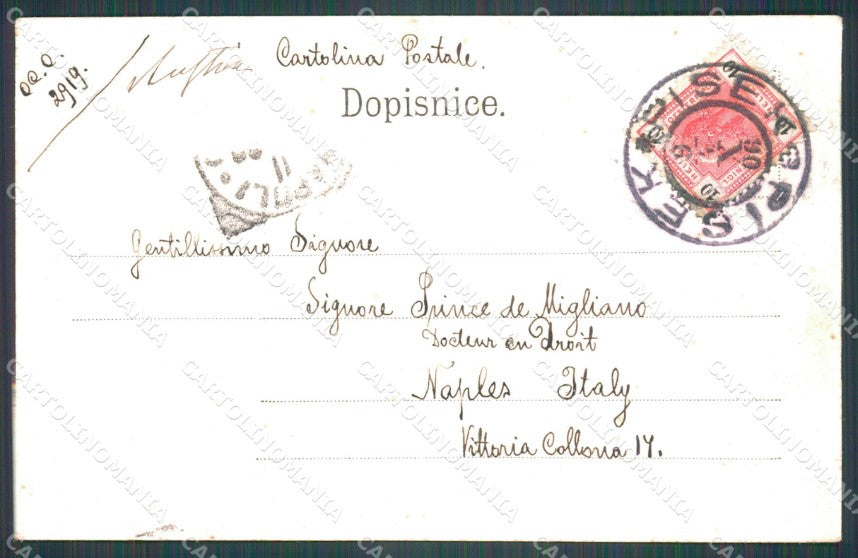 O.C.C.
2919.
Cartolina Postale.
Dopisnice.
PISEK * PISEK
Gentillissimo Signore
Signore Prince de Migliano
Docteur en Droit
Naples Italy
Vittoria Collona 17.
CARTOLINOMANIA